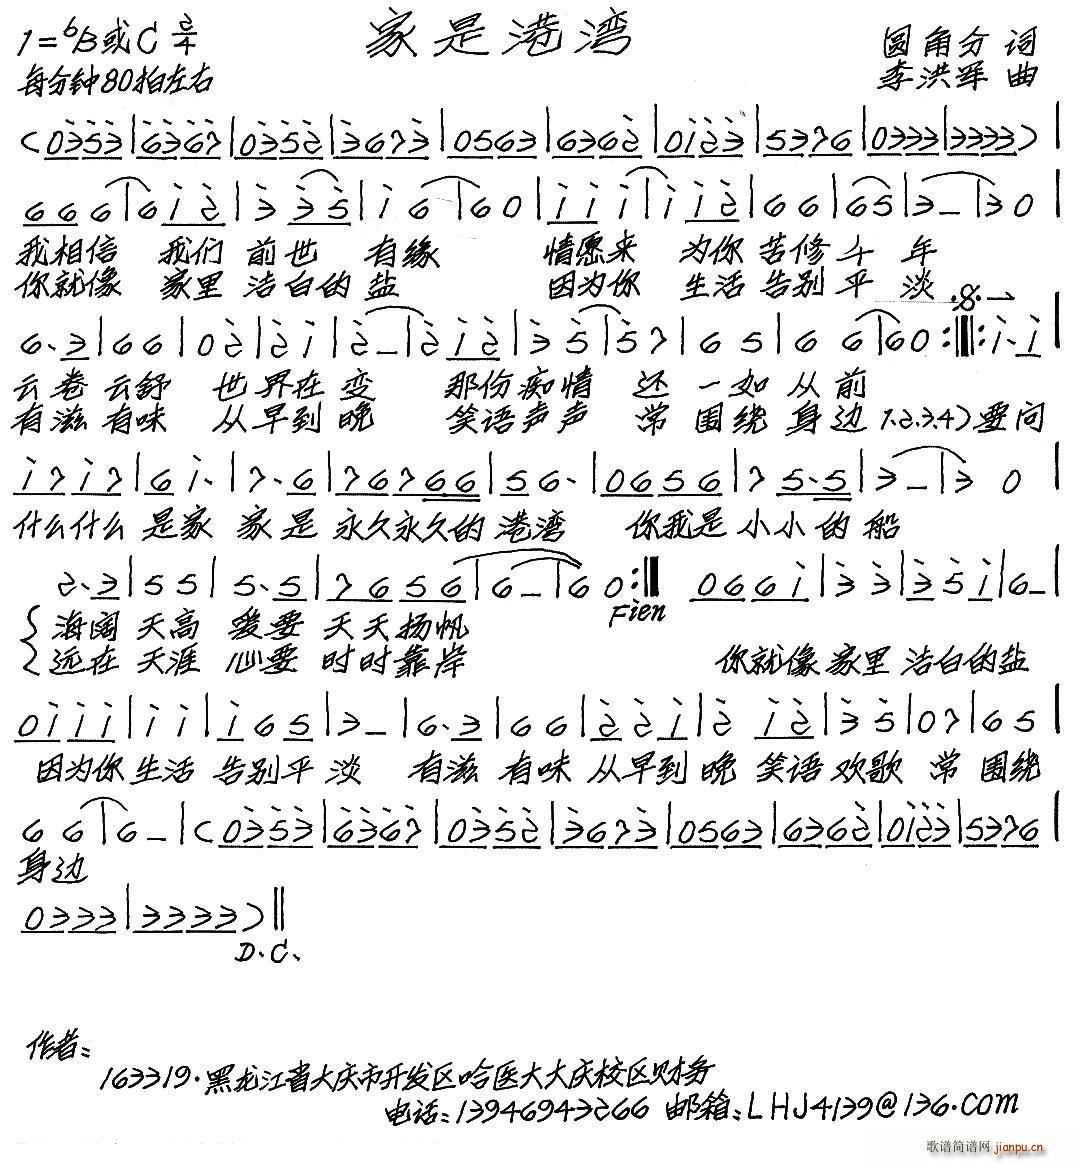 家是港湾
1=ᵇB或C 2/4
每分钟80拍左右
圆角分 词
李洪军 曲
(0353|6367|0352|3673|0563|6362|0123|5376|0333|3333)|
666|612|3 35|1 6|60|111|112|66|65|3–|30|
我相信 我们 前世 有缘 情愿来 为你 苦修 千年
你就像 家里 洁白的 盐 因为你 生活 告别 平淡
6·3|66|02|21|2–|212|35|57|65|6 6|60:‖:1·1|
云卷 云舒 世界在变 那份痴情 还一如从前
有滋有味 从早到晚 笑语声声 常围绕 身边 1.2.3.4)要问
1717|61·|7·6|76766|56·|0656|75·5|3–|30|
什么什么 是家 家是 永久永久的港湾 你我是 小小的船
2·3|55|5·5|7656|6–|60:‖ 0661|33|351|6–|
Fien
海阔 天高 爱要 天天扬帆
远在 天涯 心要 时时靠岸 你就像家里 洁白的盐
0111|11|165|3–|6·3|66|221|2 12|35|07|65|
因为你 生活 告别平淡 有滋有味 从早到晚 笑语欢歌 常围绕
66|6–|(0353|6367|0352|3673|0563|6362|0123|5376|
身边
0333|3333)‖
D.C.
作者:
163319·黑龙江省大庆市开发区哈医大大庆校区财务
电话:13946943266 邮箱:LHJ4139@136.com
歌谱简谱网 jianpu.cn